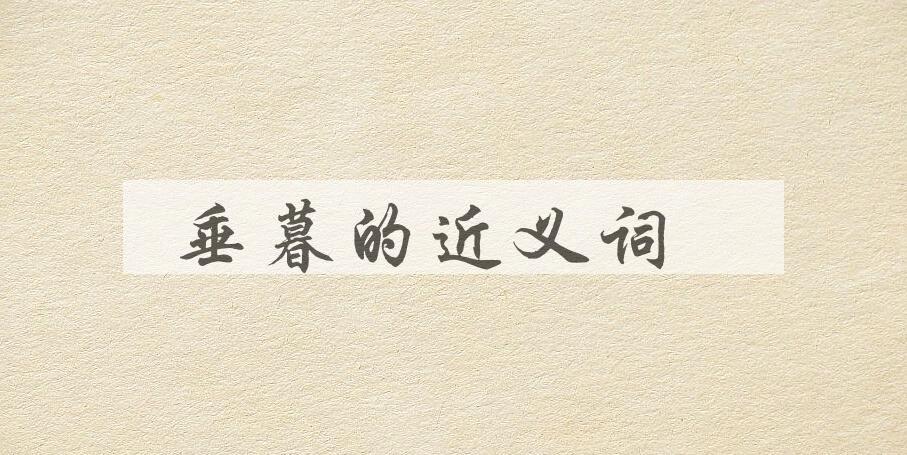 垂暮的近义词